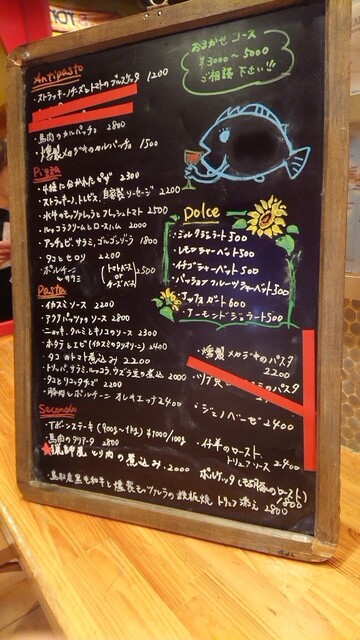 おまかせ コース
¥3000〜5000
ご相談 下さい!!
Antipasto
・ストラッキーノチーズとトマトのブルスケッタ 1200
・馬肉のカルパッチョ 2800
・燻製メカジキのカルパッチョ 1500
Pizza
・4種に分かれたピザ 2300
・ストラッキーノ、トレビス、自家製ソーセージ 2200
・水牛のモッツァレラとフレッシュトマト 2500
・ルッコラクリームとロースハム 2000
・アンチョビ、サラミ、ゴルゴンゾーラ 1800
・タコとセロリ 2200
・ポルチーニとサラミ (トマトベース or チーズベース) 2500
Pasta
・イカスミソース 2200
・アクアパッツァのソース 2800
・ニョッキ、クルミとキノコのソース 2300
・ホタテとエビ(イカスミのタリオリーニ) 2400
・タコのトマト煮込み 2200
・トリッパ、サラミ、ルッコラ、ウズラ豆の煮込 2000
・タコとリコッタチーズ 2200
・豚肉とポルチーニ オレキエッテ 2400
Dolce
・ミルクジェラート 500
・レモンシャーベット 500
・イチゴシャーベット 500
・パッションフルーツシャーベット 500
・アッフォガート 600
・アーモンドジェラート 500
・燻製メカジキのパスタ
2200
のパスタ
・ジェノベーゼ 2400
・仔羊のロースト
トリュフソース 2400
Secondo
・Tボーンステーキ (900g〜1kg) ¥1000/100g
・馬肉のタリアータ 2800
猟師風とり肉の煮込み 2000
ポルケッタ(子豚のロースト)
1800
・鳥取産黒毛和牛と燻製モッツァレラの鉄板焼 トリュフ添え 2800